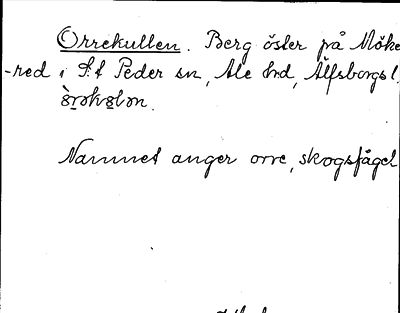 Orrekullen. Berg öster på Möke
-red i S:t Peder sn, Ale hrd, Älfsborgs l.
Namnet anger orre, skogsfågel